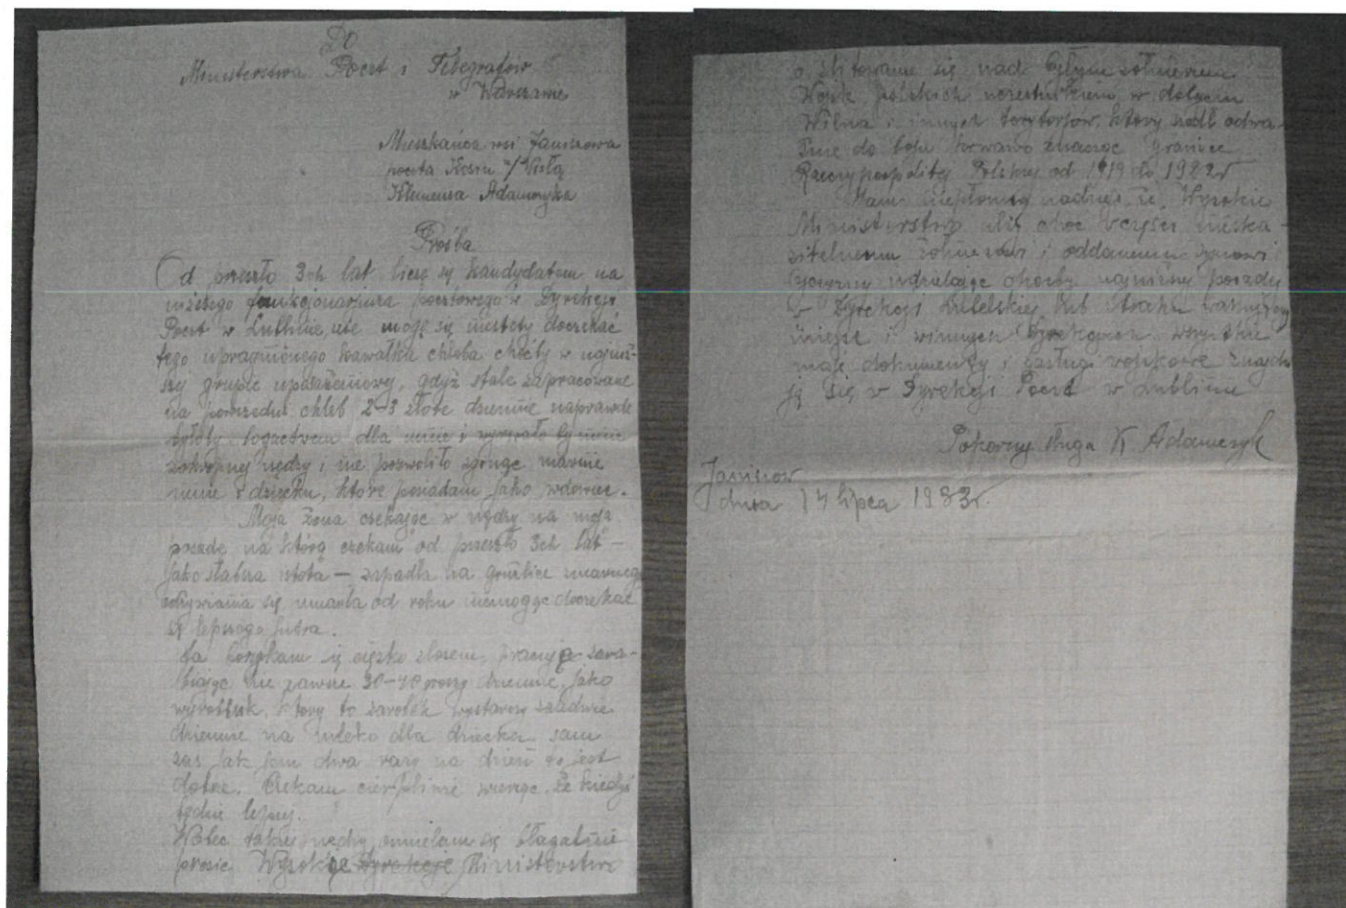 Do
Ministerstwa Poczt i Telegrafów
w Warszawie
Mieszkańca wsi Janiszowa
poczta Kosin n/Wisłą
Klemensa Adamczyka
Prośba
Od przeszło 3ch lat liczę się kandydatem na
niższego funkcjonariusza pocztowego w Dyrekcji
Poczt w Lublinie, nie mogę się niestety doczekać
tego upragnionego kawałka chleba choćby w najniż-
szej grupie uposażeniowej, gdyż stale zapracowane
na powszedni chleb 2-3 złote dziennie naprawdę
byłoby bogactwem dla mnie i wyrwało by mnie
z okropnej nędzy i nie pozwoliło zginąć marnie
mnie i dziecku, które posiadam jako wdowiec.
Moja żona czekając w nędzy na moją
posadę na którą czekam od przeszło 3ch lat —
jako słabsza istota — zapadła na gruźlicę z marnego
odżywiania się umarła od roku niemogąc doczekać
się lepszego jutra.
Ja borykam się ciężko z losem, pracuję zara-
biając nie zawsze 30-40 groszy dziennie, jako
wyrobnik, który to zarobek wystarczy zaledwie
dziennie na mleko dla dziecka, sam
zaś jak jem dwa razy na dzień to jest
dobrze. Czekam cierpliwie wierząc, że kiedyś
będzie lepiej.
Wobec takiej nędzy ośmielam się błagalnie
prosić Wysokie Dyrekcję Ministerstwo
o zlitowanie się nad byłym żołnierzem
Wojsk Polskich uczestnikiem w dobyciu
Wilna i innych terytorjów, który szedł odwa-
żnie do boju krwawo znacząc granice
Rzeczypospolitej Polskiej od 1919 do 1922r
Mam niepłonną nadzieję że Wysokie
Ministerstwo ulży choć w części nieska-
zitelnemu żołnierzowi i oddanemu synowi
Ojczyzny udzielając choćby najniższej posady
w Dyrekcji Lubelskiej lub braku
miejsc i w innych Dyrekcjach, wszystkie
moje dokumenty i zasługi wojskowe znajdu-
ją się w Dyrekcji Poczt w Lublinie
Pokorny sługa K Adamczyk
Janiszów
dnia 14 lipca 1933r.